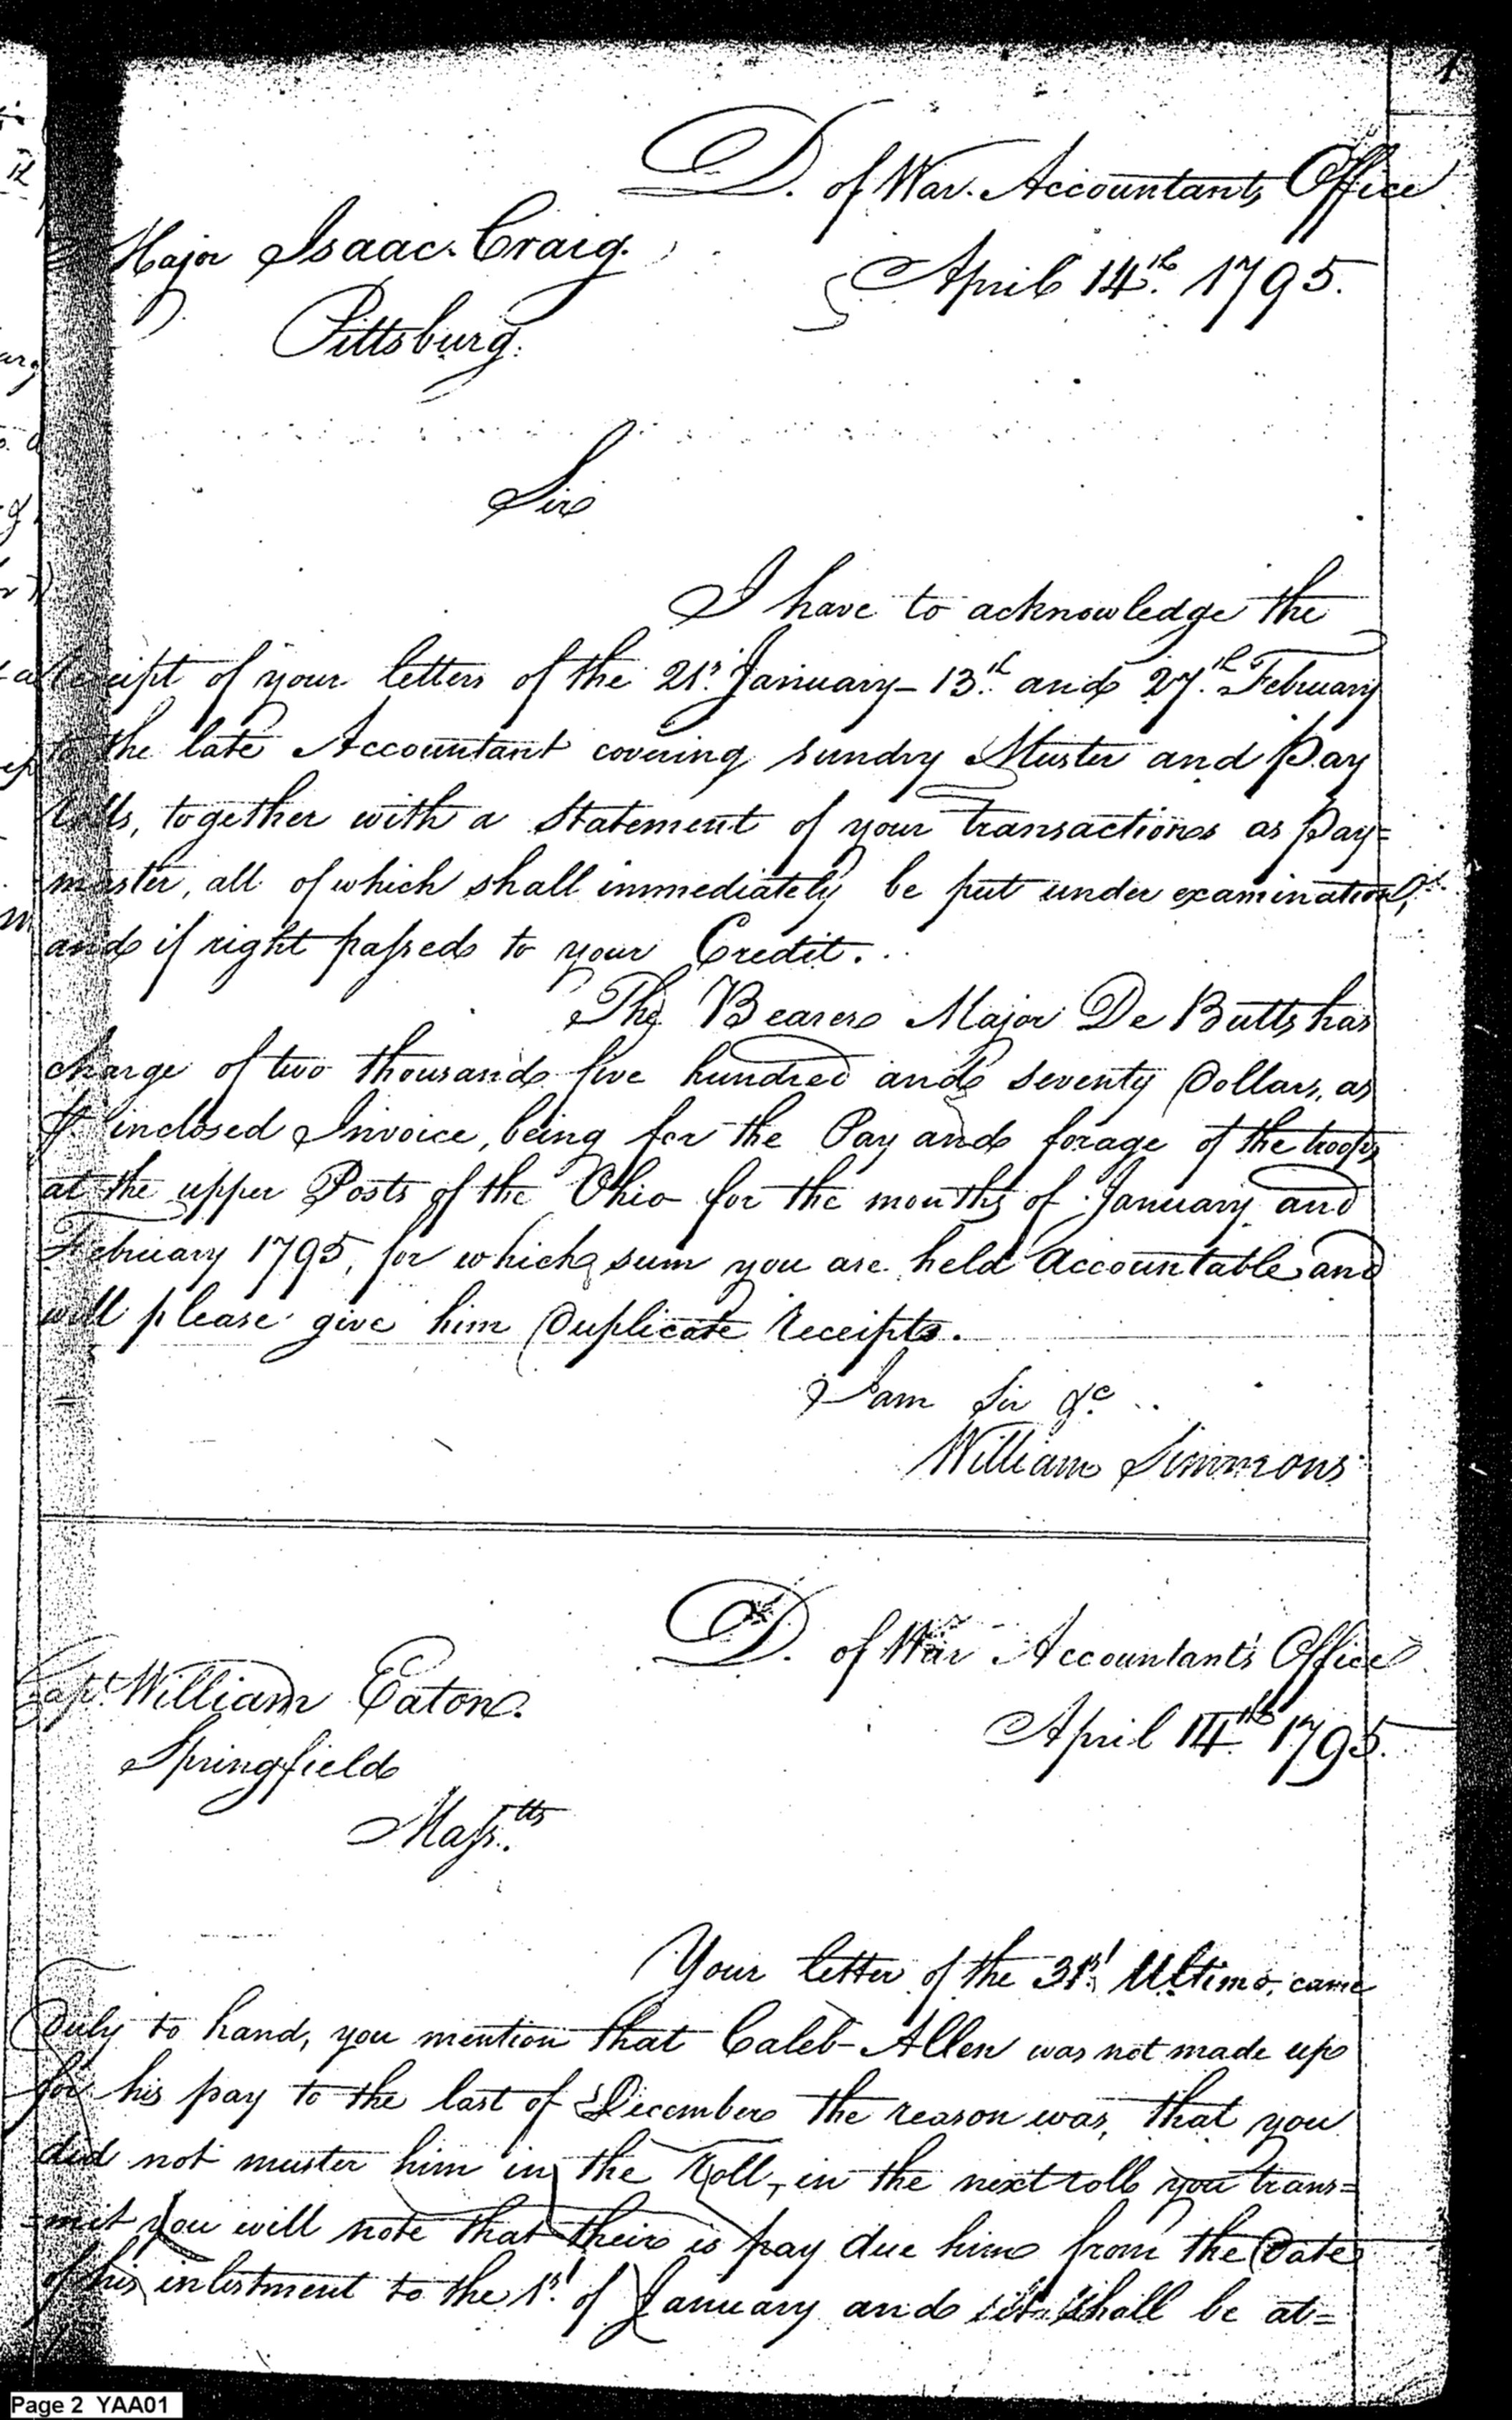 1
D. of War. Accountants Office
Major Isaac Craig.
April 14th. 1795.
Pittsburg.
Sir
I have to acknowledge the
receipt of your letters of the 21st. January - 13th. and 27th. February
to the late Accountant covering sundry Muster and Pay
Rolls, together with a Statement of your transactions as Pay=
master, all of which shall immediately be put under examination,
and if right passed to your Credit.
The Bearer Major De Butts has
charge of two thousand five hundred and seventy Dollars, as
inclosed Invoice, being for the Pay and forage of the troops
at the upper Posts of the Ohio for the months of January and
February 1795, for which sum you are held Accountable and
will please give him Duplicate receipts.
I am Sir &c.
William Simmons
D. of War Accountant's Office
Capt. William Eaton.
April 14th 1795.
Springfield
Masstts.
Your letter of the 31st. Ultimo, came
Duly to hand, you mention that Caleb Allen was not made up
for his pay to the last of December the reason was, that you
did not muster him in the Roll, in the next roll you trans=
=mit you will note that their is pay due him from the Date
of his inlistment to the 1st. of January and it shall be at=
Page 2 YAA01